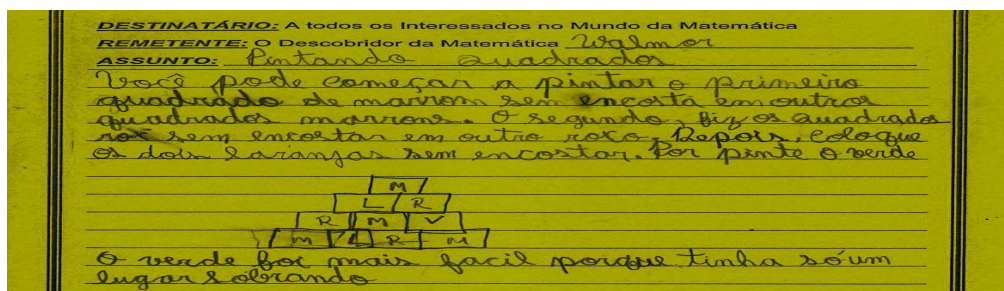 DESTINATÁRIO: A todos os Interessados no Mundo da Matemática
REMETENTE: O Descobridor da Matemática Walmor
ASSUNTO: Pintando quadrados
Você pode começar a pintar o primeiro
quadrado de marrom sem encosta em outros
quadrados marrons. O segundo, fiz os quadrados
rox sem encostar em outro roxo. Depois, coloque
os dois laranjas sem encostar. Por pinte o verde
M
L R
R M V
M L R M
O verde foi mais facil porque tinha só um
lugar sobrando